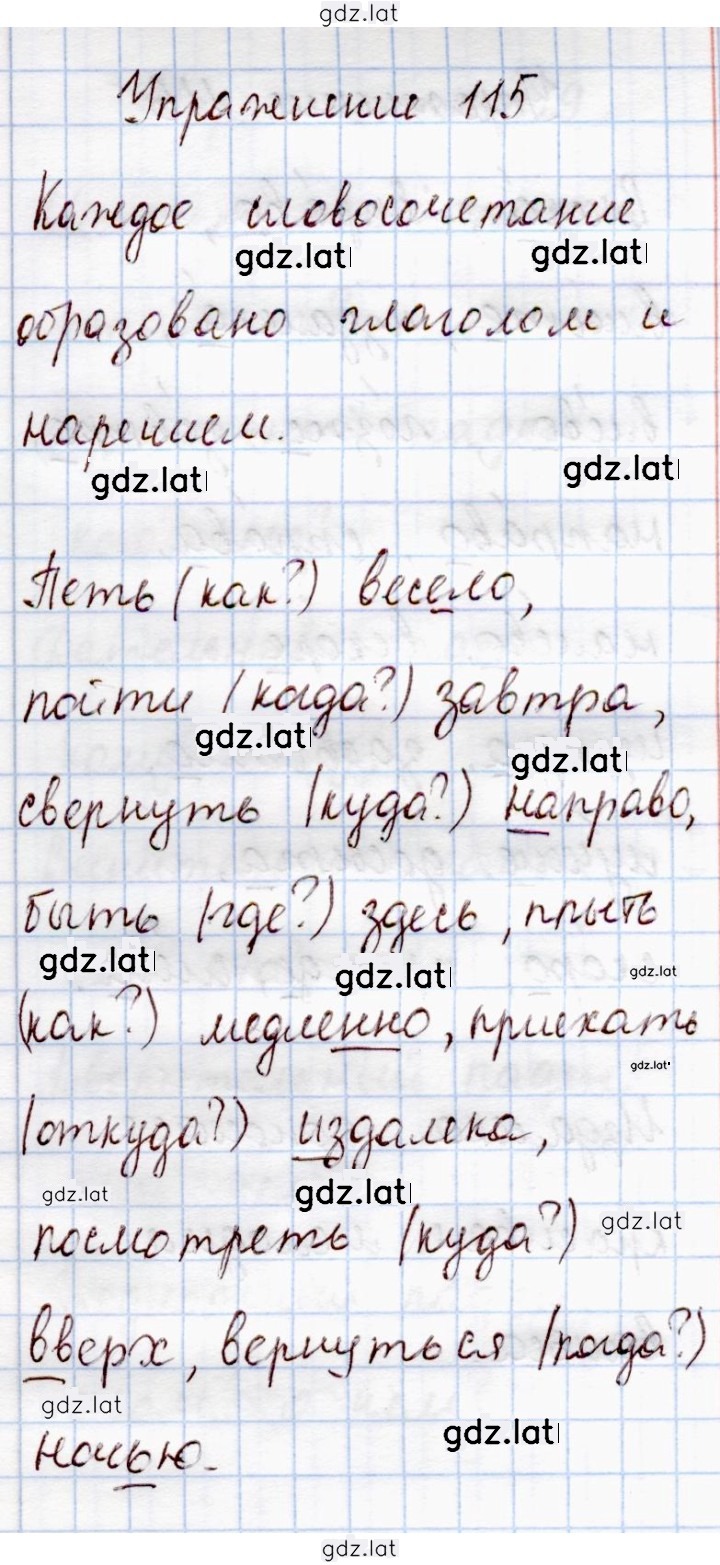 gdz.lat
Упражнение 115
Каждое словосочетание
gdz.lat gdz.lat
образовано глаголом и
наречием.
gdz.lat gdz.lat
Петь (как?) весело,
пойти (когда?) завтра,
gdz.lat gdz.lat
свернуть (куда?) направо,
быть (где?) здесь, плыть
gdz.lat gdz.lat gdz.lat
(как?) медленно, приехать
gdz.lat
(откуда?) издалека,
gdz.lat gdz.lat gdz.lat
посмотреть (куда?)
вверх, вернуться (когда?)
gdz.lat gdz.lat
ночью.
gdz.lat